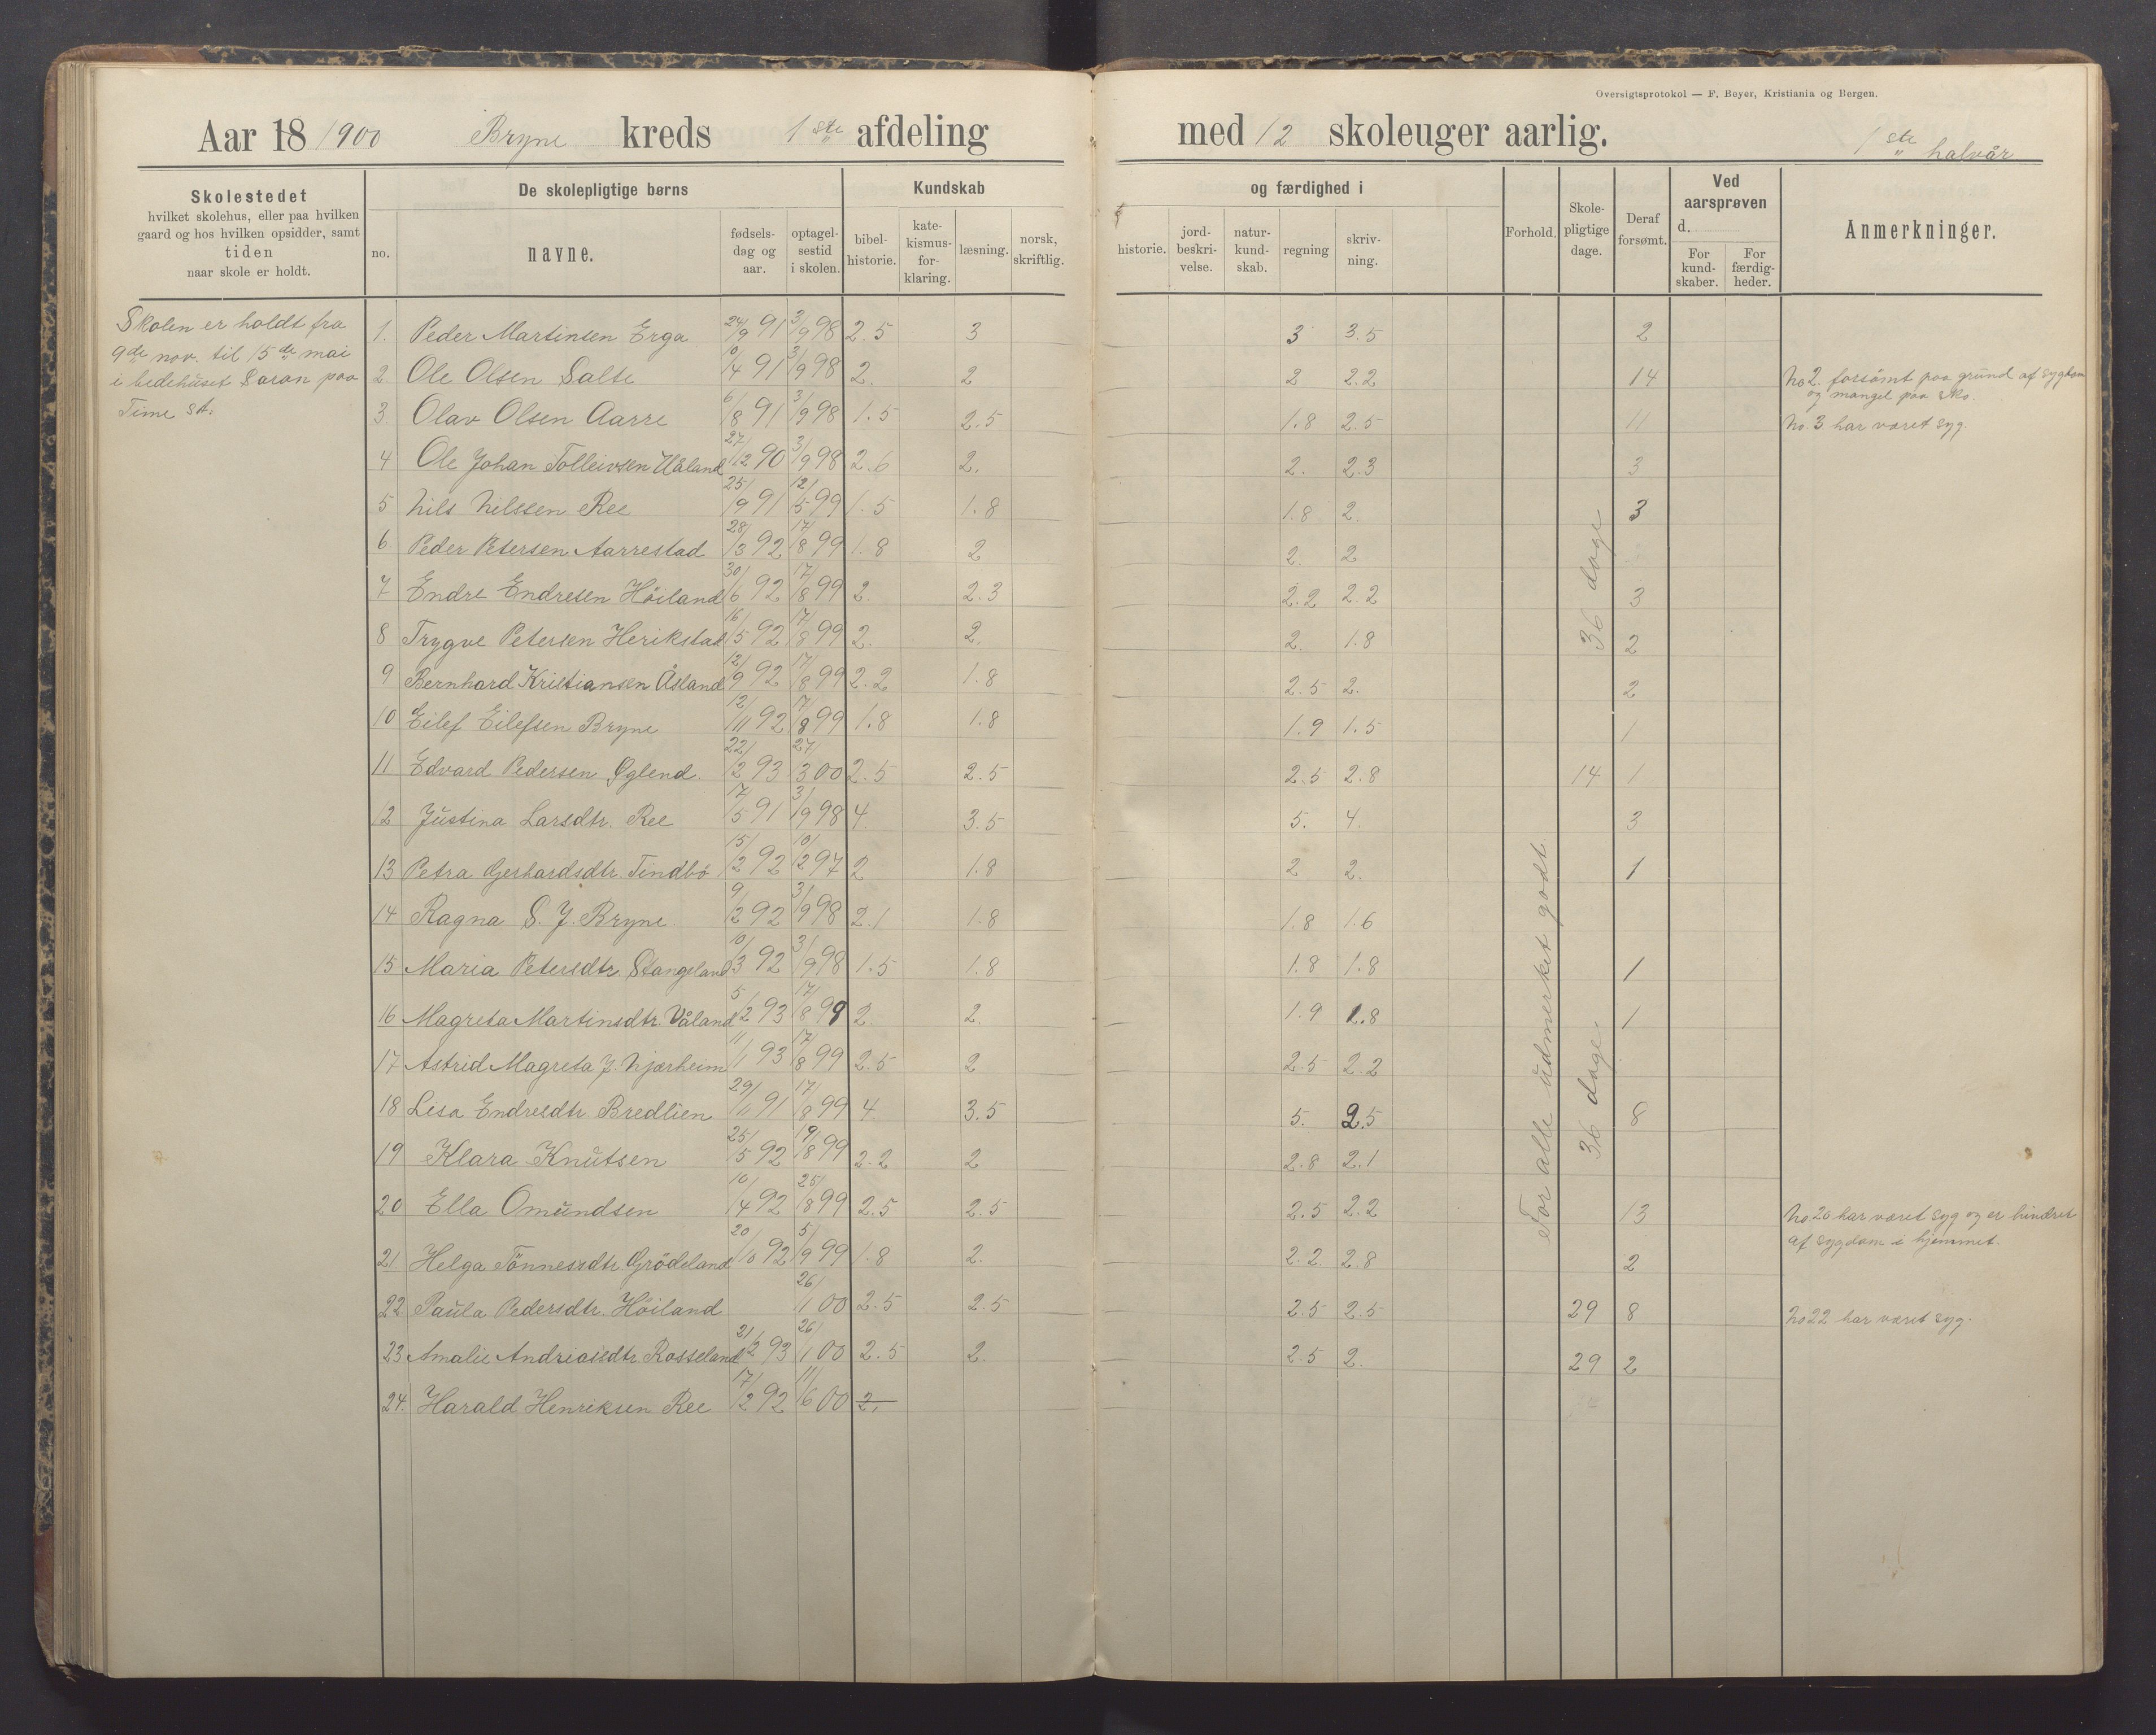 Oversigtsprotokol — F. Beyer, Kristiania og Bergen.
Aar 18 1900 Bryne kreds 1ste afdeling med 12 skoleuger aarlig. 1ste halvår
Skolestedet
hvilket skolehus, eller paa hvilken
gaard og hos hvilken opsidder, samt
tiden
naar skole er holdt.
De skolepligtige børns
no. navne. fødsels-dag og aar. optagel-sestid i skolen.
Kundskab og færdighed i
bibel-historie. kate-kismus-for-klaring. læsning. norsk, skriftlig. historie. jord-beskri-velse. natur-kund-skab. regning skriv-ning.
Forhold. Skole-pligtige dage. Deraf forsømt.
Ved aarsprøven d.
For kund-skaber. For færdig-heder.
Anmerkninger.
Skolen er holdt fra
9de nov. til 15de mai
i bedehuset Saron paa
Time st.
1. Peder Martinsen Erga 24/9 91 3/9 98 2.5 3 3 3.5 2
2. Ole Olsen Salte 10/4 91 3/9 98 2. 2 2 2.2 14 No 2. forsømt paa grund af sygdom
og mangel paa sko.
3. Olav Olsen Aarre 6/8 91 3/9 98 1.5 2.5 1.8 2.5 11 No. 3 har været syg.
4 Ole Johan Tolleivsen Håland 27/12 90 3/9 98 2.6 2. 2. 2.3 3
5 Nils Nilssen Ree 25/9 91 12/5 99 1.5 1.8 1.8 2. 3
6 Peder Petersen Aarrestad 28/3 92 17/8 99 1.8 2 2. 2
7 Endre Endresen Höiland 30/6 92 17/8 99 2. 2.3 2.2 2.2 3
8 Trygve Petersen Herikstad 16/5 92 17/8 99 2. 2. 2. 1.8 2
9 Bernhard Kristiansen Åsland 12/9 92 17/8 99 2.2 1.8 2.5 2. 2
10 Eilef Eilefsen Bryne 12/11 92 17/8 99 1.8 1.8 1.9 1.5 1
11 Edvard Pedersen Øglend. 22/2 93 27/3 00 2.5 2.5 2.5 2.8 14 1
12 Justina Larsdtr. Ree 17/5 91 3/9 98 4. 3.5 5. 4. 3
13 Petra Gerhardsdtr. Tindbö 15/2 92 10/12 97 2 1.8 2 2. 1
14 Ragna S. J. Bryne. 9/2 92 3/9 98 2.1 1.8 1.8 1.6
15 Maria Petersdtr. Stangeland 10/3 92 3/9 98 1.5 1.8 1.8 1.8 1
16 Magreta Martinsdtr. Våland 5/2 93 17/8 99 2. 2. 1.9 1.8 1
17 Astrid Magreta J. Njærheim 11/1 93 17/8 99 2.5 2 2.5 2.2
18 Lisa Endresdtr. Bredlien 29/11 91 17/8 99 4. 3.5 5. 2.5 8
19 Klara Knutsen 25/5 92 19/8 99 2.2 2 2.8 2.1
20 Ella Omundsen 10/4 92 25/8 99 2.5 2.5 2.5 2.2 13 No 20 har været syg og er hindret
af sygdom i hjemmet.
21 Helga Tönnessdtr. Grödeland 20/10 92 5/9 99 1.8 2. 2.2. 2.8 2
22 Paula Pedersdtr. Höiland 26/1 00 2.5 2.5 2.5 2.5 29 8 No 22 har været syg.
23 Amalie Andreasdtr. Rosseland 21/2 93 26/1 00 2.5 2. 2.5 2. 29 2
24. Harald Henriksen Ree 17/2 92 11/6 00 2.
36 dage
36 dage
For alle udmerket godt.